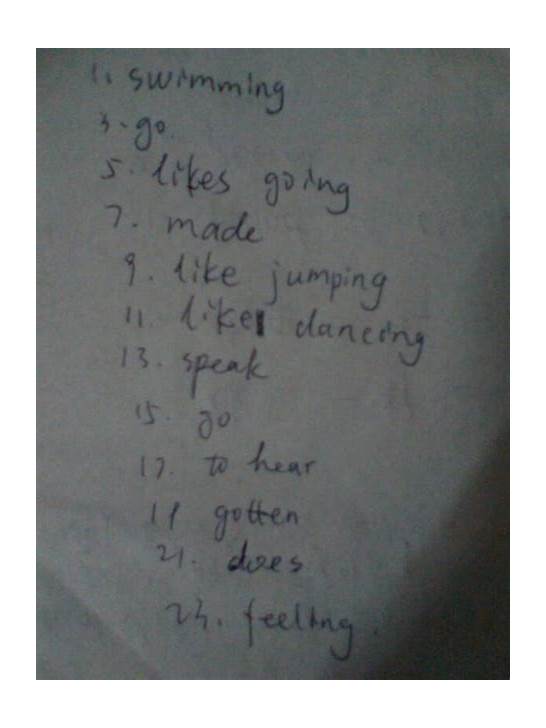 1. swimming
3. go.
5. likes going
7. made
9. like jumping
11. likes dancing
13. speak
15. go
17. to hear
19 gotten
21. does
23. feeling.